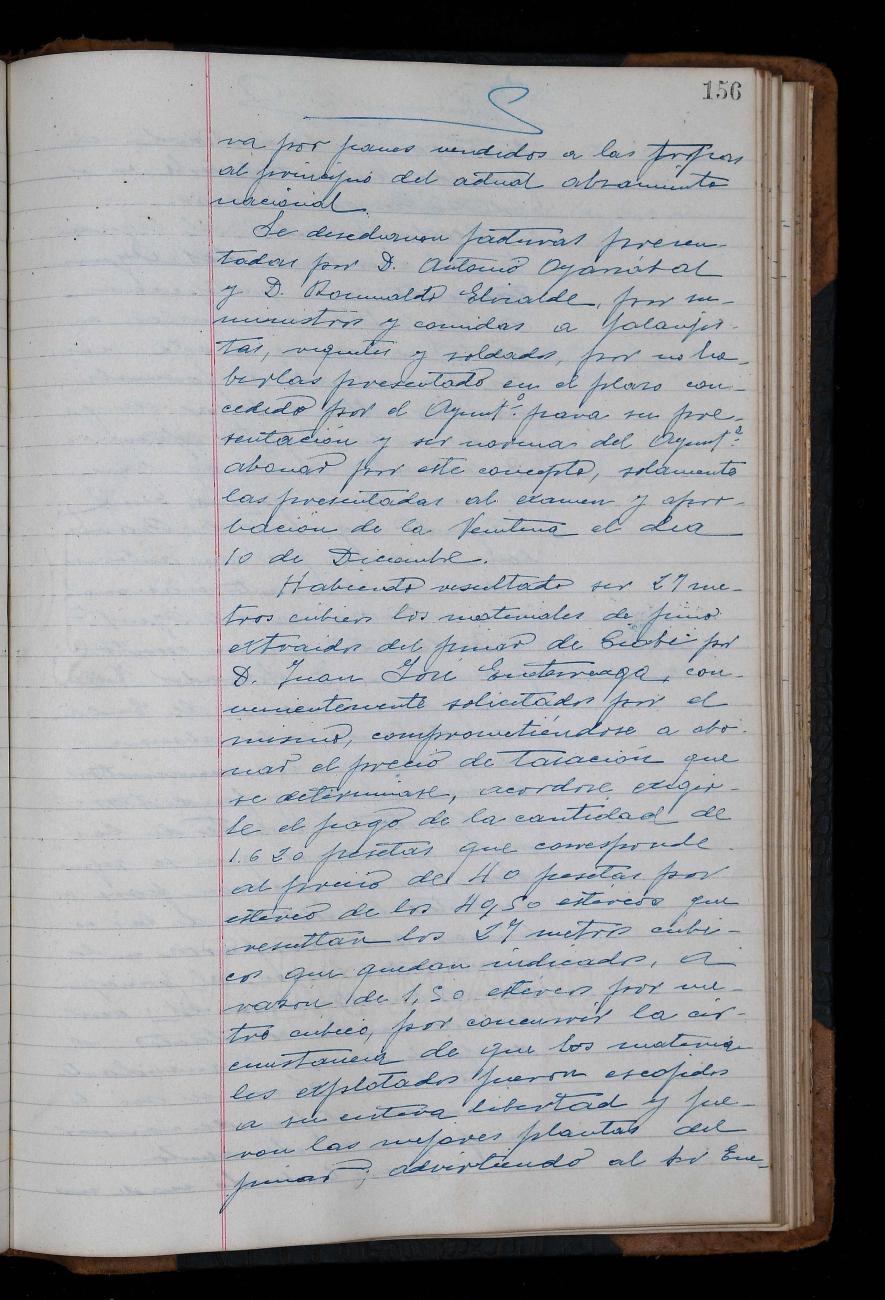 156
va por panes vendidos a las tropas
al principio del actual alzamiento
nacional.
Se desecharon facturas presen-
tadas por D. Antonio Oyarzabal
y D. Romualdo Elizalde, por su-
ministros y comidas a falangis-
tas, requetés y soldados, por no ha-
berlas presentado en el plazo con-
cedido por el Ayuntº. para su pre-
sentación y ser normas del Ayuntº.
abonar por este concepto, solamente
las presentadas al examen y apro-
bación de la Ventena el dia
10 de Diciembre.
Habiendo resultado ser 27 me-
tros cubicos los materiales de pino
extraidos del pinar de por
D. Juan José con-
venientemente solicitados por el
mismo, comprometiéndose a abo-
nar el precio de tasación que
se determinase, acordose exigir-
le el pago de la cantidad de
1.620 pesetas que corresponde
al precio de 40 pesetas por
estéreo de los 40,50 estéreos que
resultan los 27 metros cubi-
cos que quedan indicados, a
razón de 1,50 estéreos por me-
tro cubico, por concurrir la cir-
cunstancia de que los materia-
les explotados fueron escogidos
a su entera libertad y fue-
ron las mejores plantas del
pinar; advirtiendo al Sr Ene-